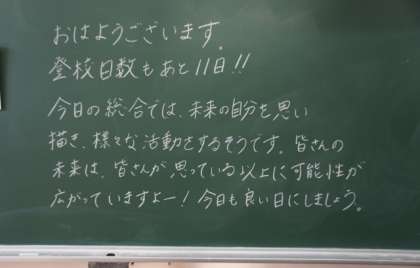 おはようございます。
登校日数もあと11日!!
今日の総合では、未来の自分を思い
描き、様々な活動をするそうです。皆さんの
未来は、皆さんが思っている以上に可能性が
広がっていますよー!今日も良い日にしましょう。